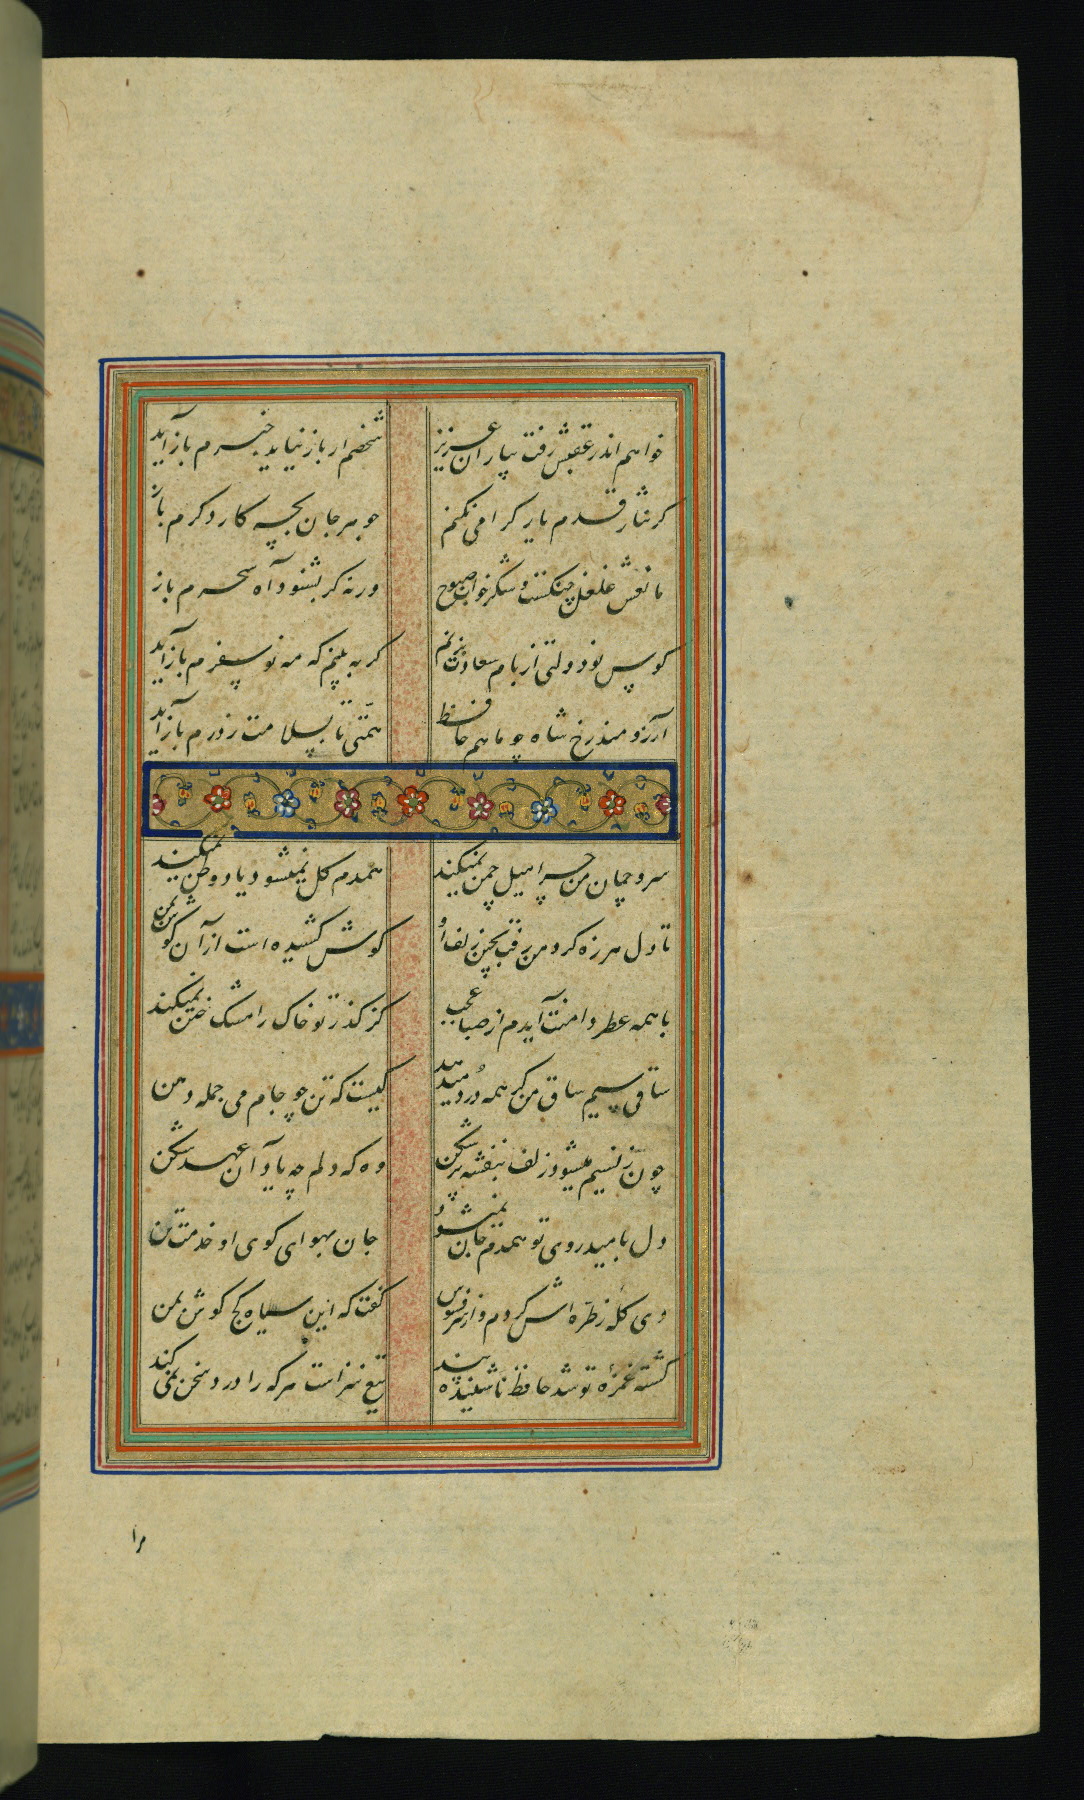 خواهم اندر عقبش رفت بیاران عزیز شخصم ار باز نیاید خبرم بازآید
کر نثار قدم یار کرامی نکنم جوهر جان بچه کار دکرم باز
مانعش غلغل چنکست و شکرخواب صبوح ورنه کر بشنود آه سحرم باز
کوس نو دولتی از بام سعادت بزنم کر به بینم که مه نو سفرم بازآید
آرزومند رخ شاه چو ماهم حافظ همتی تا بسلامت ز درم بازآید
سرو چمان من چرا میل چمن نمیکند همدم کل نمیشود یاد وطن نمیکند
تا دل هرزه کرد من رفت بچین زلف او
باهمه عطر دامنت آیدم از صبا عجب کز کذر تو خاک را مشک ختن نمیکند
ساقی سیم ساق من کر همه درد میدهد کیست که تن چو جام می جمله دهن
چون ز نسیم میشود زلف بنفشه پرشکن وه که دلم چه یاد آن عهدشکن
دل بامید روی تو همدم جان نمیشود جان بهوای کوی او خدمت تن
دی کله ز طره اش کردم و از سر فسوس کفت که این سیاه کج کوش بمن
کشته غمزه تو شد حافظ ناشنیده پند تیغ سزاست هرکه را درد سخن نمی کند
مرا